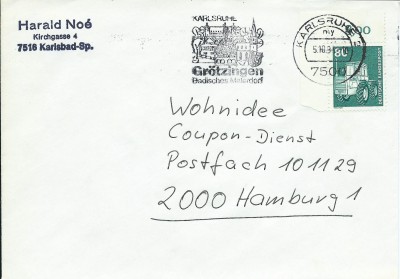 Harald Noé
Kirchgasse 4
7516 Karlsbad-Sp.
KARLSRUHE
Grötzingen
Badisches Malerdorf
KARLSRUHE
my
7500
80
DEUTSCHE BUNDESPOST
Wohnidee
Coupon-Dienst
Postfach 101129
2000 Hamburg 1